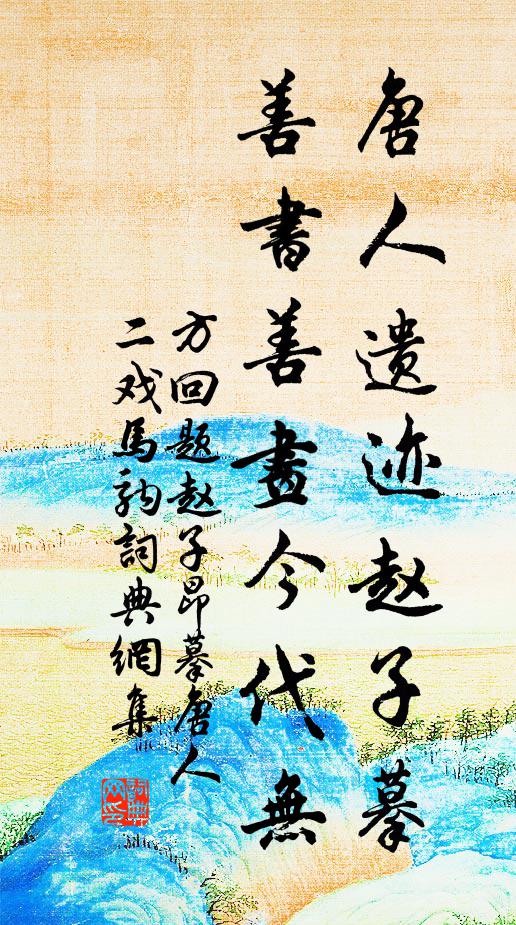 唐人遗迹赵子摹
善書善畫今代無
方回题赵子昂摹唐人
二戏馬駒詞典網集